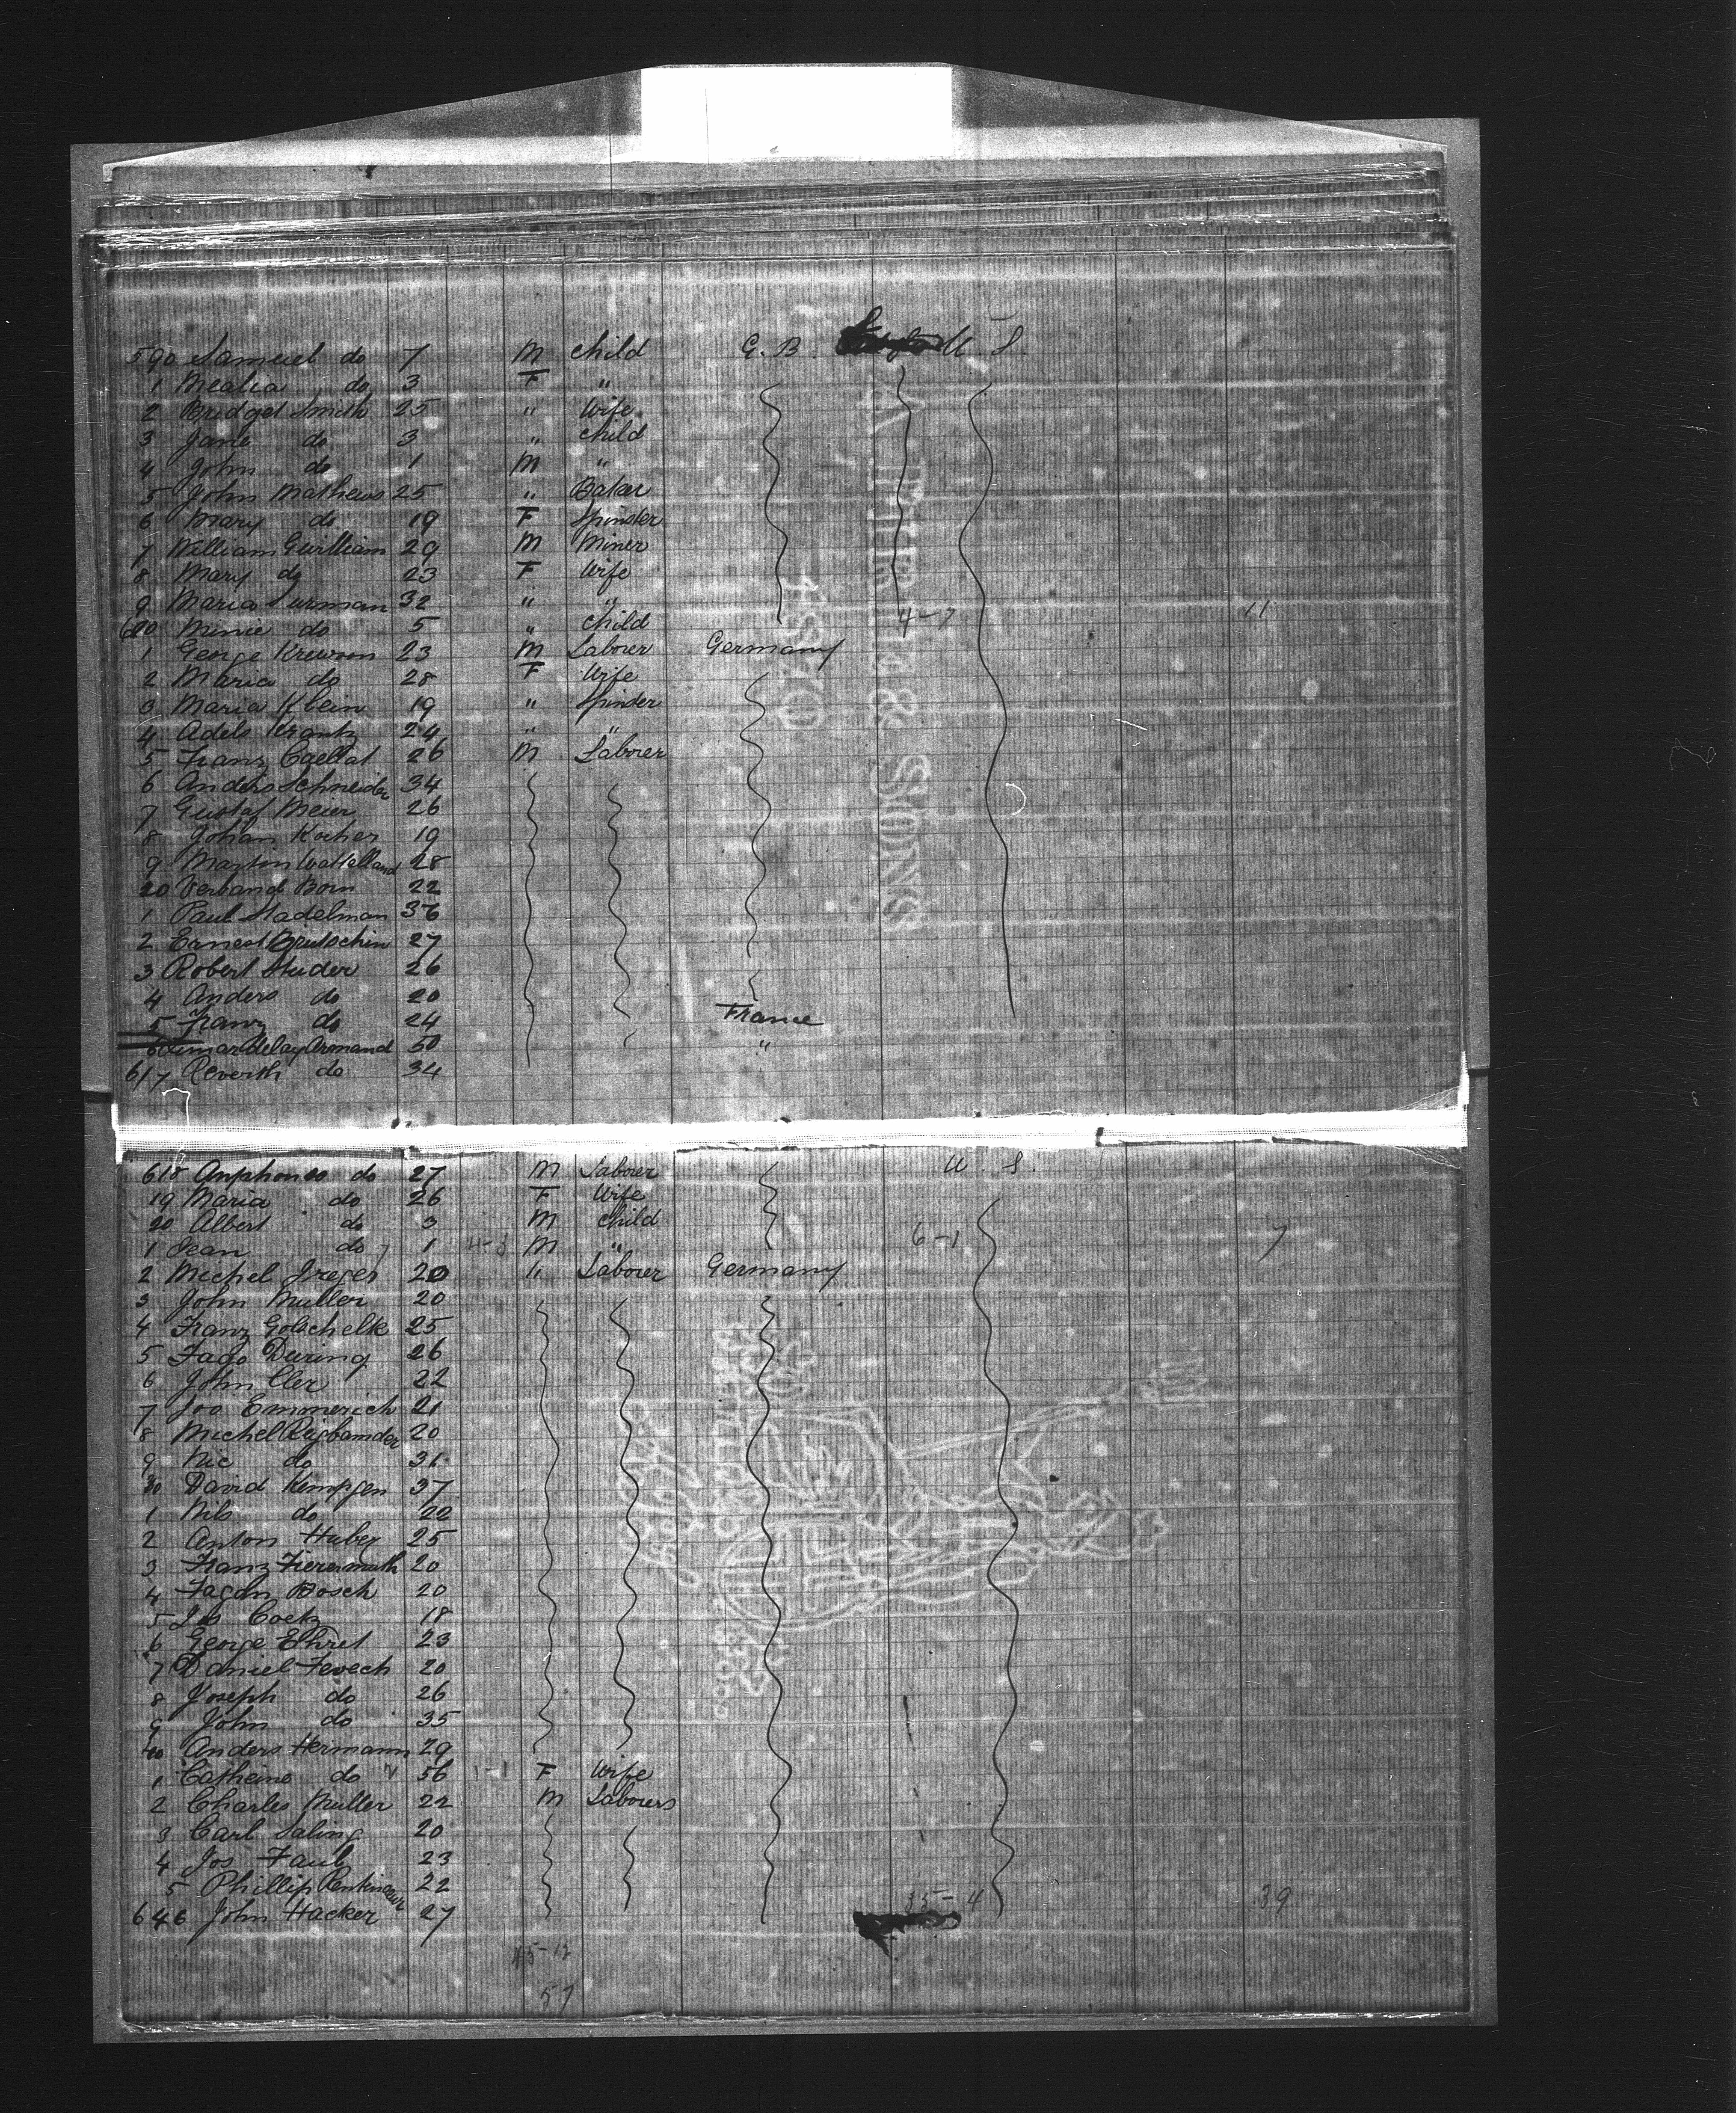 590 Samuel do 7 M child G. B. U. S.
1 Mealia do 3 F "
2 Bridget Smith 25 " Wife
3 Jane do 3 " child
4 John do 1 M "
5 John Mathews 25 " Baker
6 Mary do 19 F Spinster
7 William Gwilliam 29 M Miner
8 Mary do 23 F Wife
9 Maria Surman 32 " " 4-7 11
600 Minie do 5 " child
1 George Krewson 23 M Labourer Germany
2 Maria do 28 F Wife
3 Maria Klein 19 " Spinster
4 Adels Krantz 24 " "
5 Franz Caellat 26 M Labourer
6 Anders Schneider 34
7 Gustaf Meier 26
8 Johan Kocher 19
9 Martin 28
10 Verband Born 22
1 Paul Stadelman 36
2 Ernest Brutschin 27
3 Robert Studer 26
4 Anders do 20
5 Franz do 24 France
6 Armand 50 "
617 Reverth do 34
618 Anphonso do 27 M Labourer U. S.
19 Maria do 26 F Wife
20 Albert do 3 M child
1 Jean do 1 4-3 M " 6-1 7
2 Michel 20 " Labourer Germany
3 John Muller 20
4 Franz Golschelk 25
5 Jago During 26
6 John Cler 22
7 Jos Emmerich 21
8 Michel 20
9 Nic do 31
30 David Kempgen 37
1 Nils do 22
2 Anton Huber 25
3 Franz Fierermuth 20
4 Bosch 20
5 Coetz 18
6 George Ehret 23
7 Daniel Fevech 20
8 Joseph do 26
9 John do 35
40 Anders Hermann 29
1 Catheine do 56 1-1 F Wife
2 Charles Muller 22 M Labourers
3 Carl Saling 20
4 Jos Faul 23
5 Phillip 22
646 John Hacker 27 35-4 39
45-12
57
A PIRIE & SONS
1870